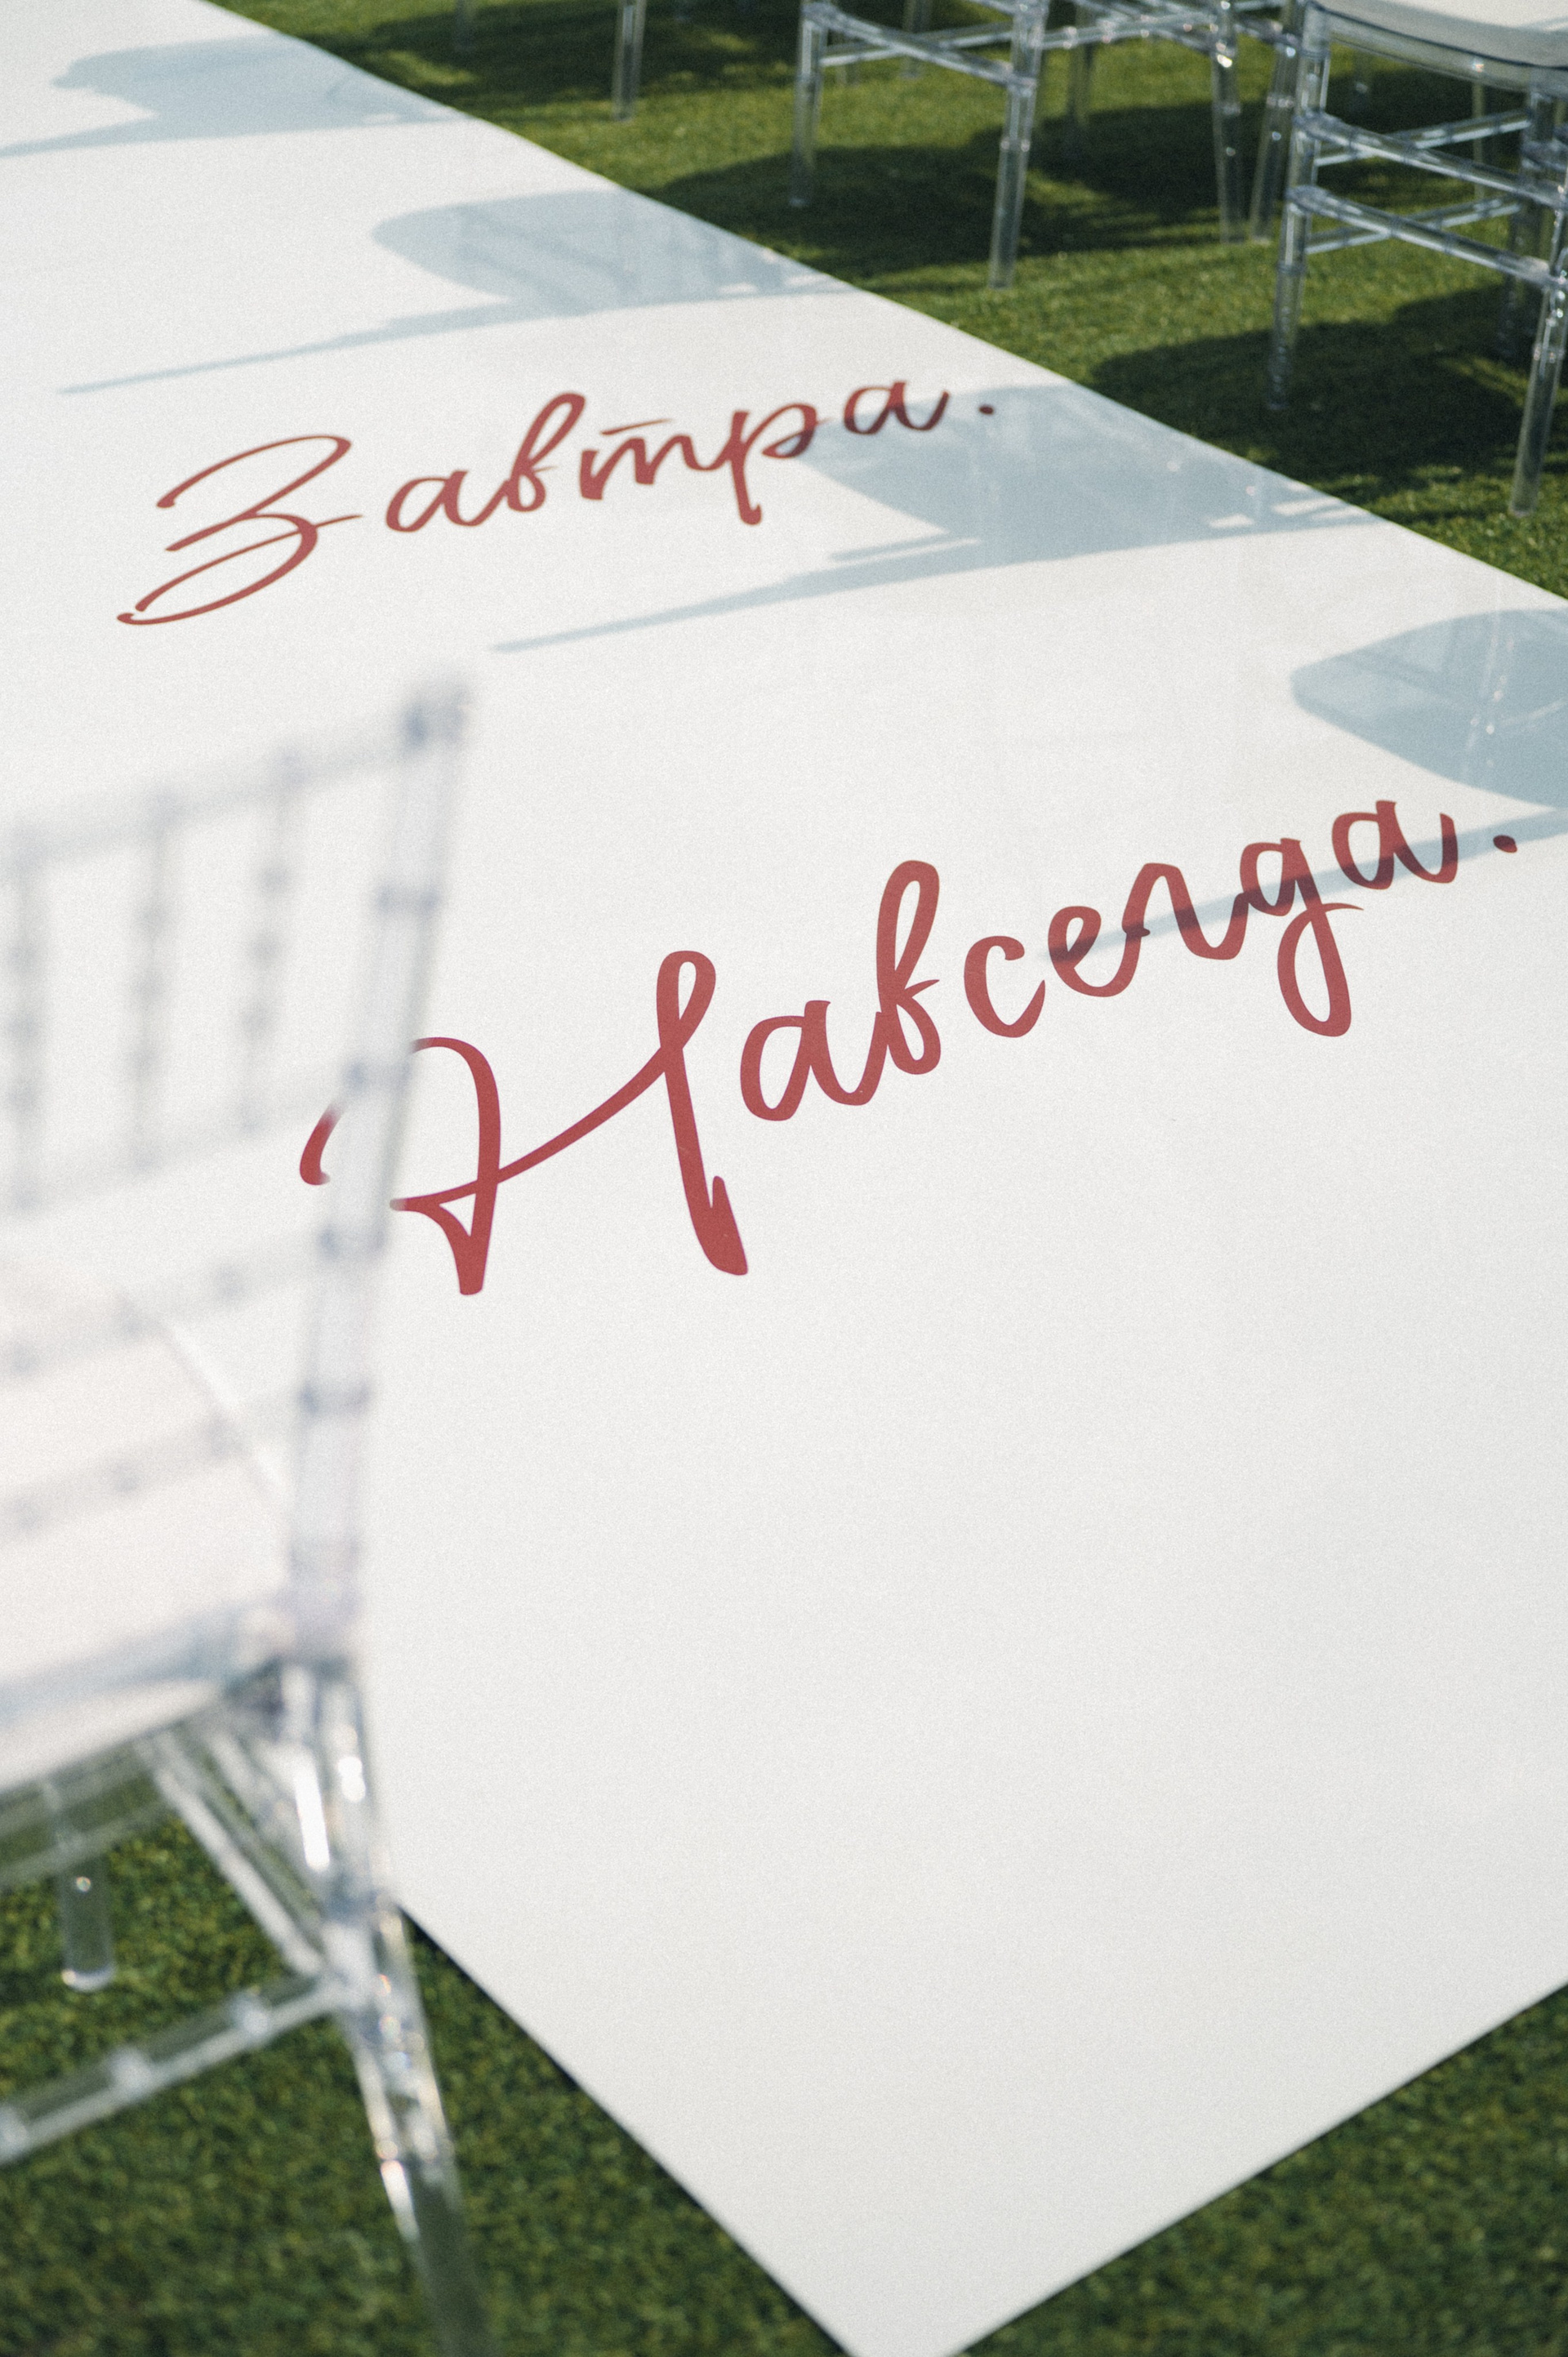 Завтра.
Навсегда.